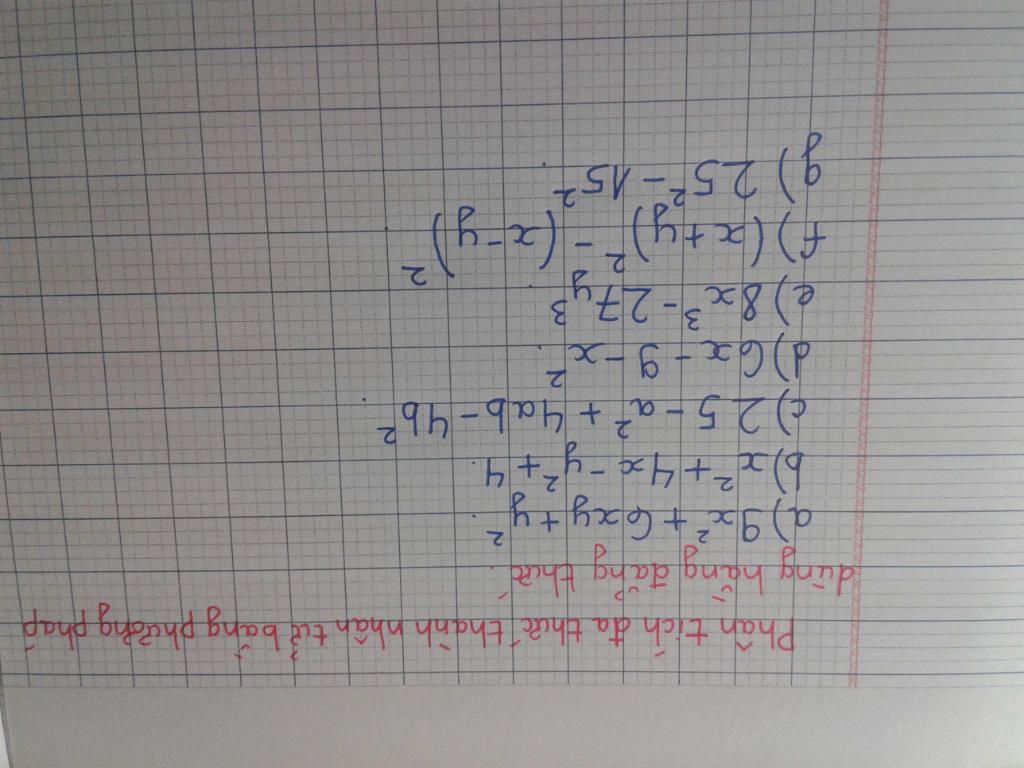 Phân tích đa thức thành nhân tử bằng phương pháp
dùng hằng đẳng thức.
a) 9x² + 6xy + y².
b) x² + 4x - y² + 4.
c) 25 - a² + 4ab - 4b².
d) 6x - 9 - x².
e) 8x³ - 27y³.
f) (x + y)² - (x - y)².
g) 25² - 15².